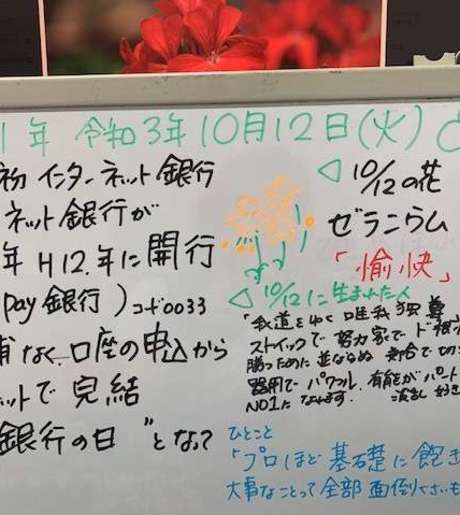 1年 令和3年10月12日(火)
初 インターネット銀行
ネット銀行が
年 H12.年に開行
pay銀行)コード0033
なく、口座の申込から
ットで 完結
銀行の日"となって
◁ 10/12の花
ゼラニウム
「愉快」
◁ 10/12に生まれた人
「我道をゆく 唯我独尊
ストイックで 努力家で ド根
勝つために 並ならぬ
器用で パワフル、有能が パート
NO1に なれます.
ひとこと
「プロほど 基礎に 飽き
大事なことって 全部 面倒くさいも